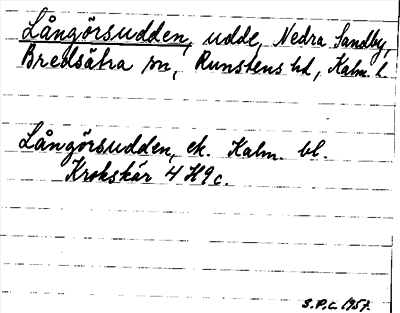 Långörsudden, udde, Nedra Sandby,
Bredsätra sn, Runstens hd, Kalm. l.
Långörsudden, ek. Kalm. bl.
Krokskär 4 H9c.
S.P.L. 1957.